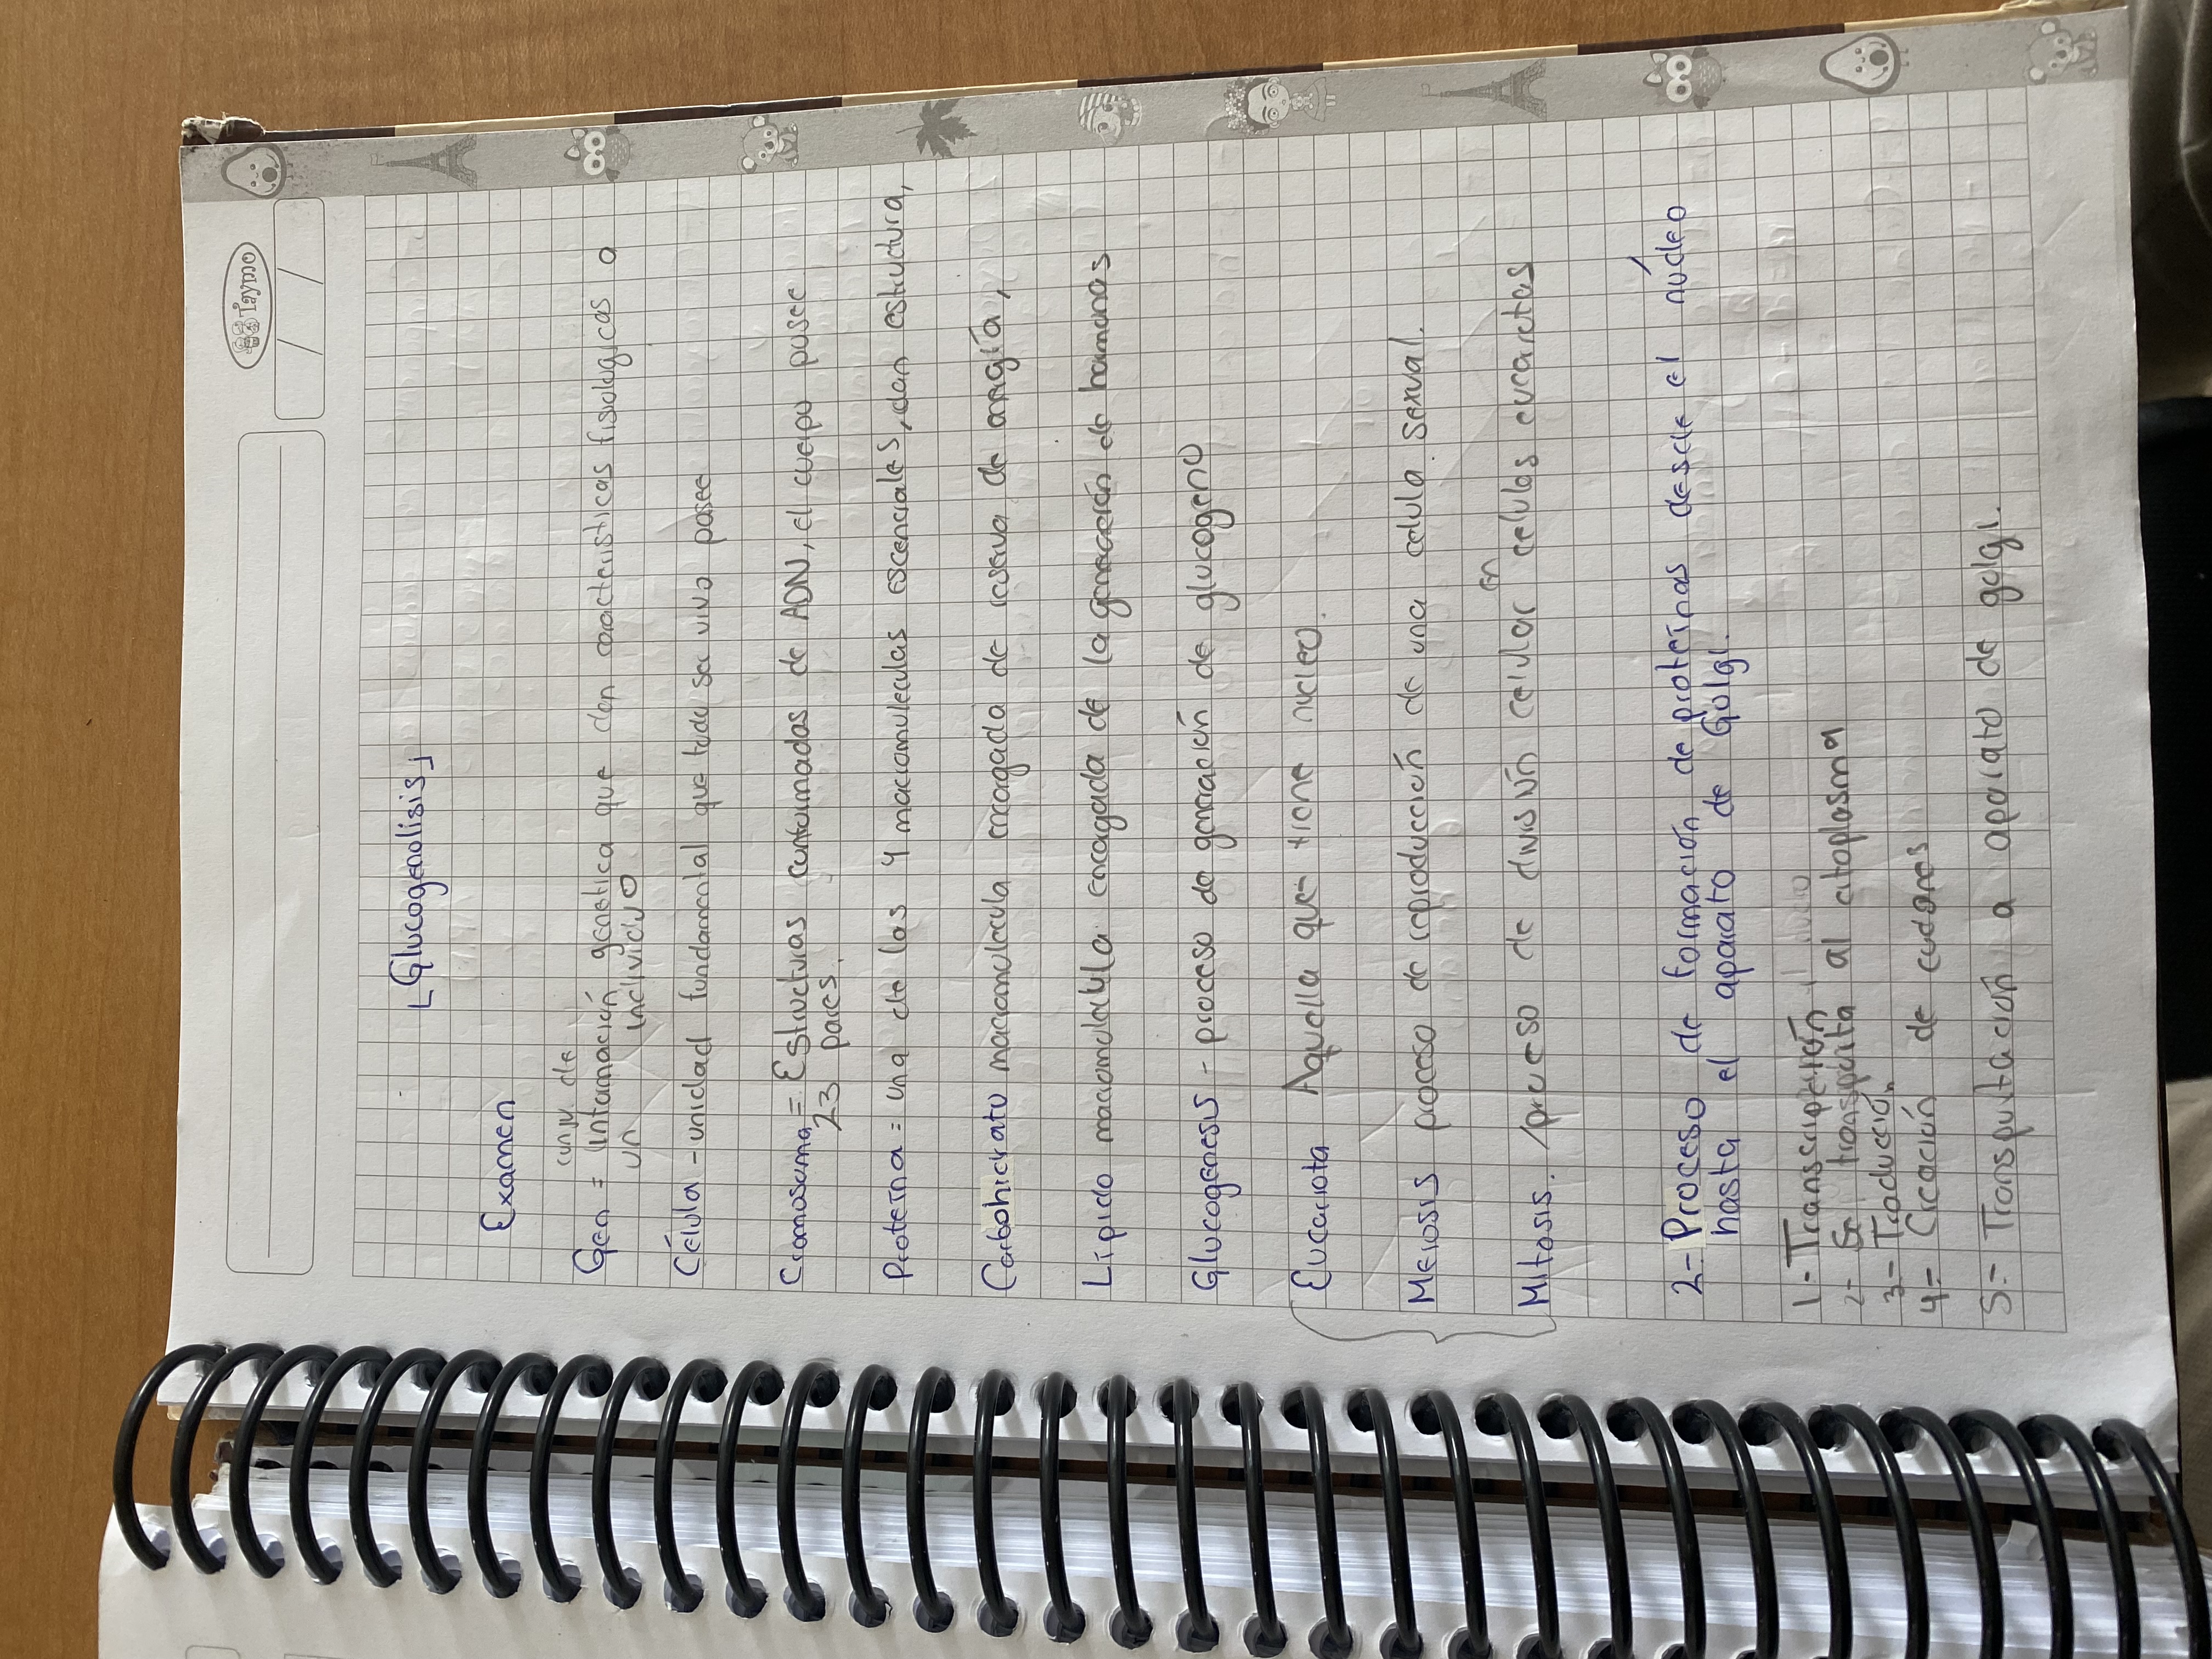 Taymo
Glucogenolisis
Examen
conj. de
Gen = información genetica que dan caracteristicas fisiologicas a
un individuo
Célula - unidad fundamental que todo ser vivo posee
Cromosoma = Estructuras conformadas de ADN, el cuerpo posee
23 pares.
Proteína = una de las 4 macromoleculas escenciales, dan estructura,
Carbohidrato macromolecula encargada de reserva de energía,
Lípido macromolecula encargada de la generación de hormonas
Glucogenesis - proceso de generación de glucogeno
Eucariota Aquella que tiene nucleo.
Meiosis proceso de reproducción de una celula sexual.
en
Mitosis. proceso de división celular celulas eucariotas
2- Proceso de formación de proteínas desde el núcleo
hasta el aparato de Golgi.
1- Transcripción
2- Se transporta al citoplasma
3- Traducción
4- Creación de codones
5- Transportación a aparato de golgi.